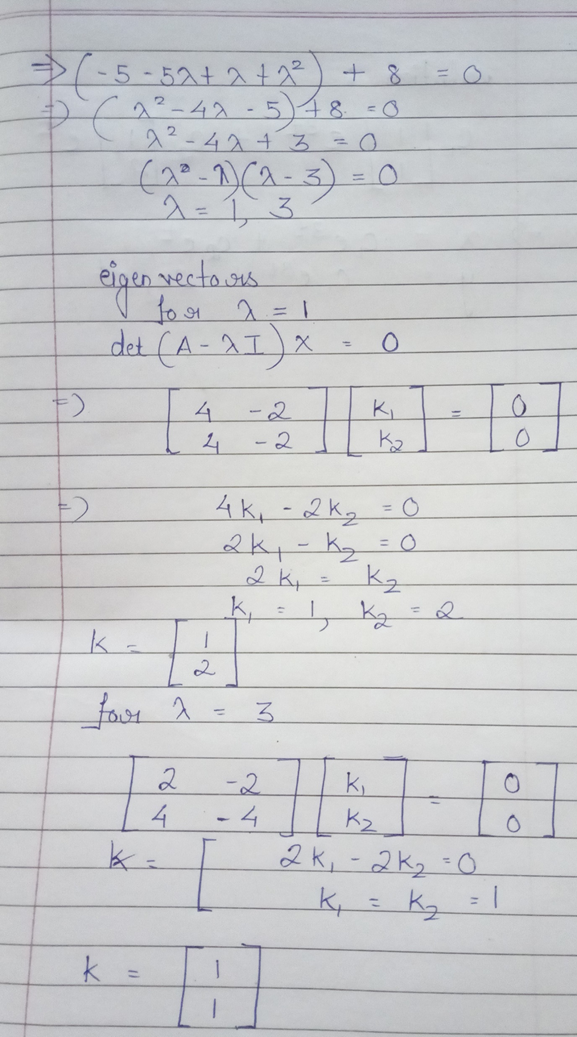 ⇒ (-5 - 5λ + λ + λ²) + 8 = 0
⇒ (λ² - 4λ - 5) + 8 = 0
λ² - 4λ + 3 = 0
(λ² - λ)(λ - 3) = 0
λ = 1, 3
eigen vectors
for λ = 1
det (A - λI) X = 0
⇒ [4 -2; 4 -2] [K₁; K₂] = [0; 0]
⇒ 4K₁ - 2K₂ = 0
2K₁ - K₂ = 0
2K₁ = K₂
K₁ = 1, K₂ = 2
K = [1; 2]
for λ = 3
[2 -2; 4 -4] [K₁; K₂] = [0; 0]
K = [ 2K₁ - 2K₂ = 0
K₁ = K₂ = 1
K = [1; 1]